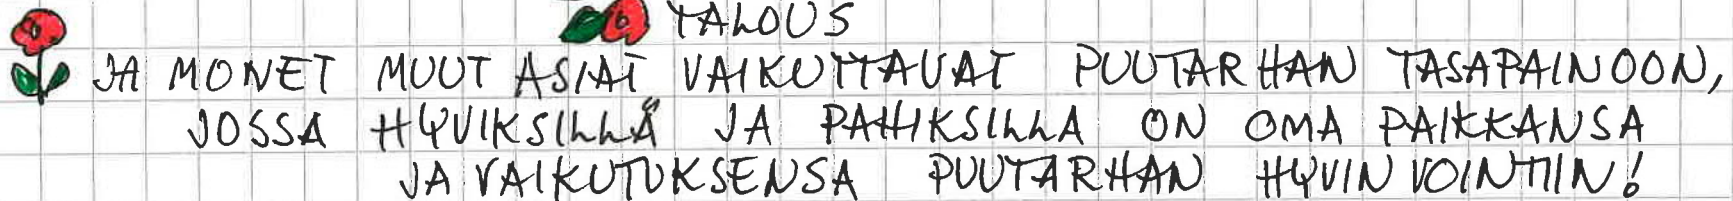 TALOUS
JA MONET MUUT ASIAT VAIKUTTAVAT PUUTARHAN TASAPAINOON,
JOSSA HYVIKSILLÄ JA PAHIKSILLA ON OMA PAIKKANSA
JA VAIKUTUKSENSA PUUTARHAN HYVINVOINTIIN!